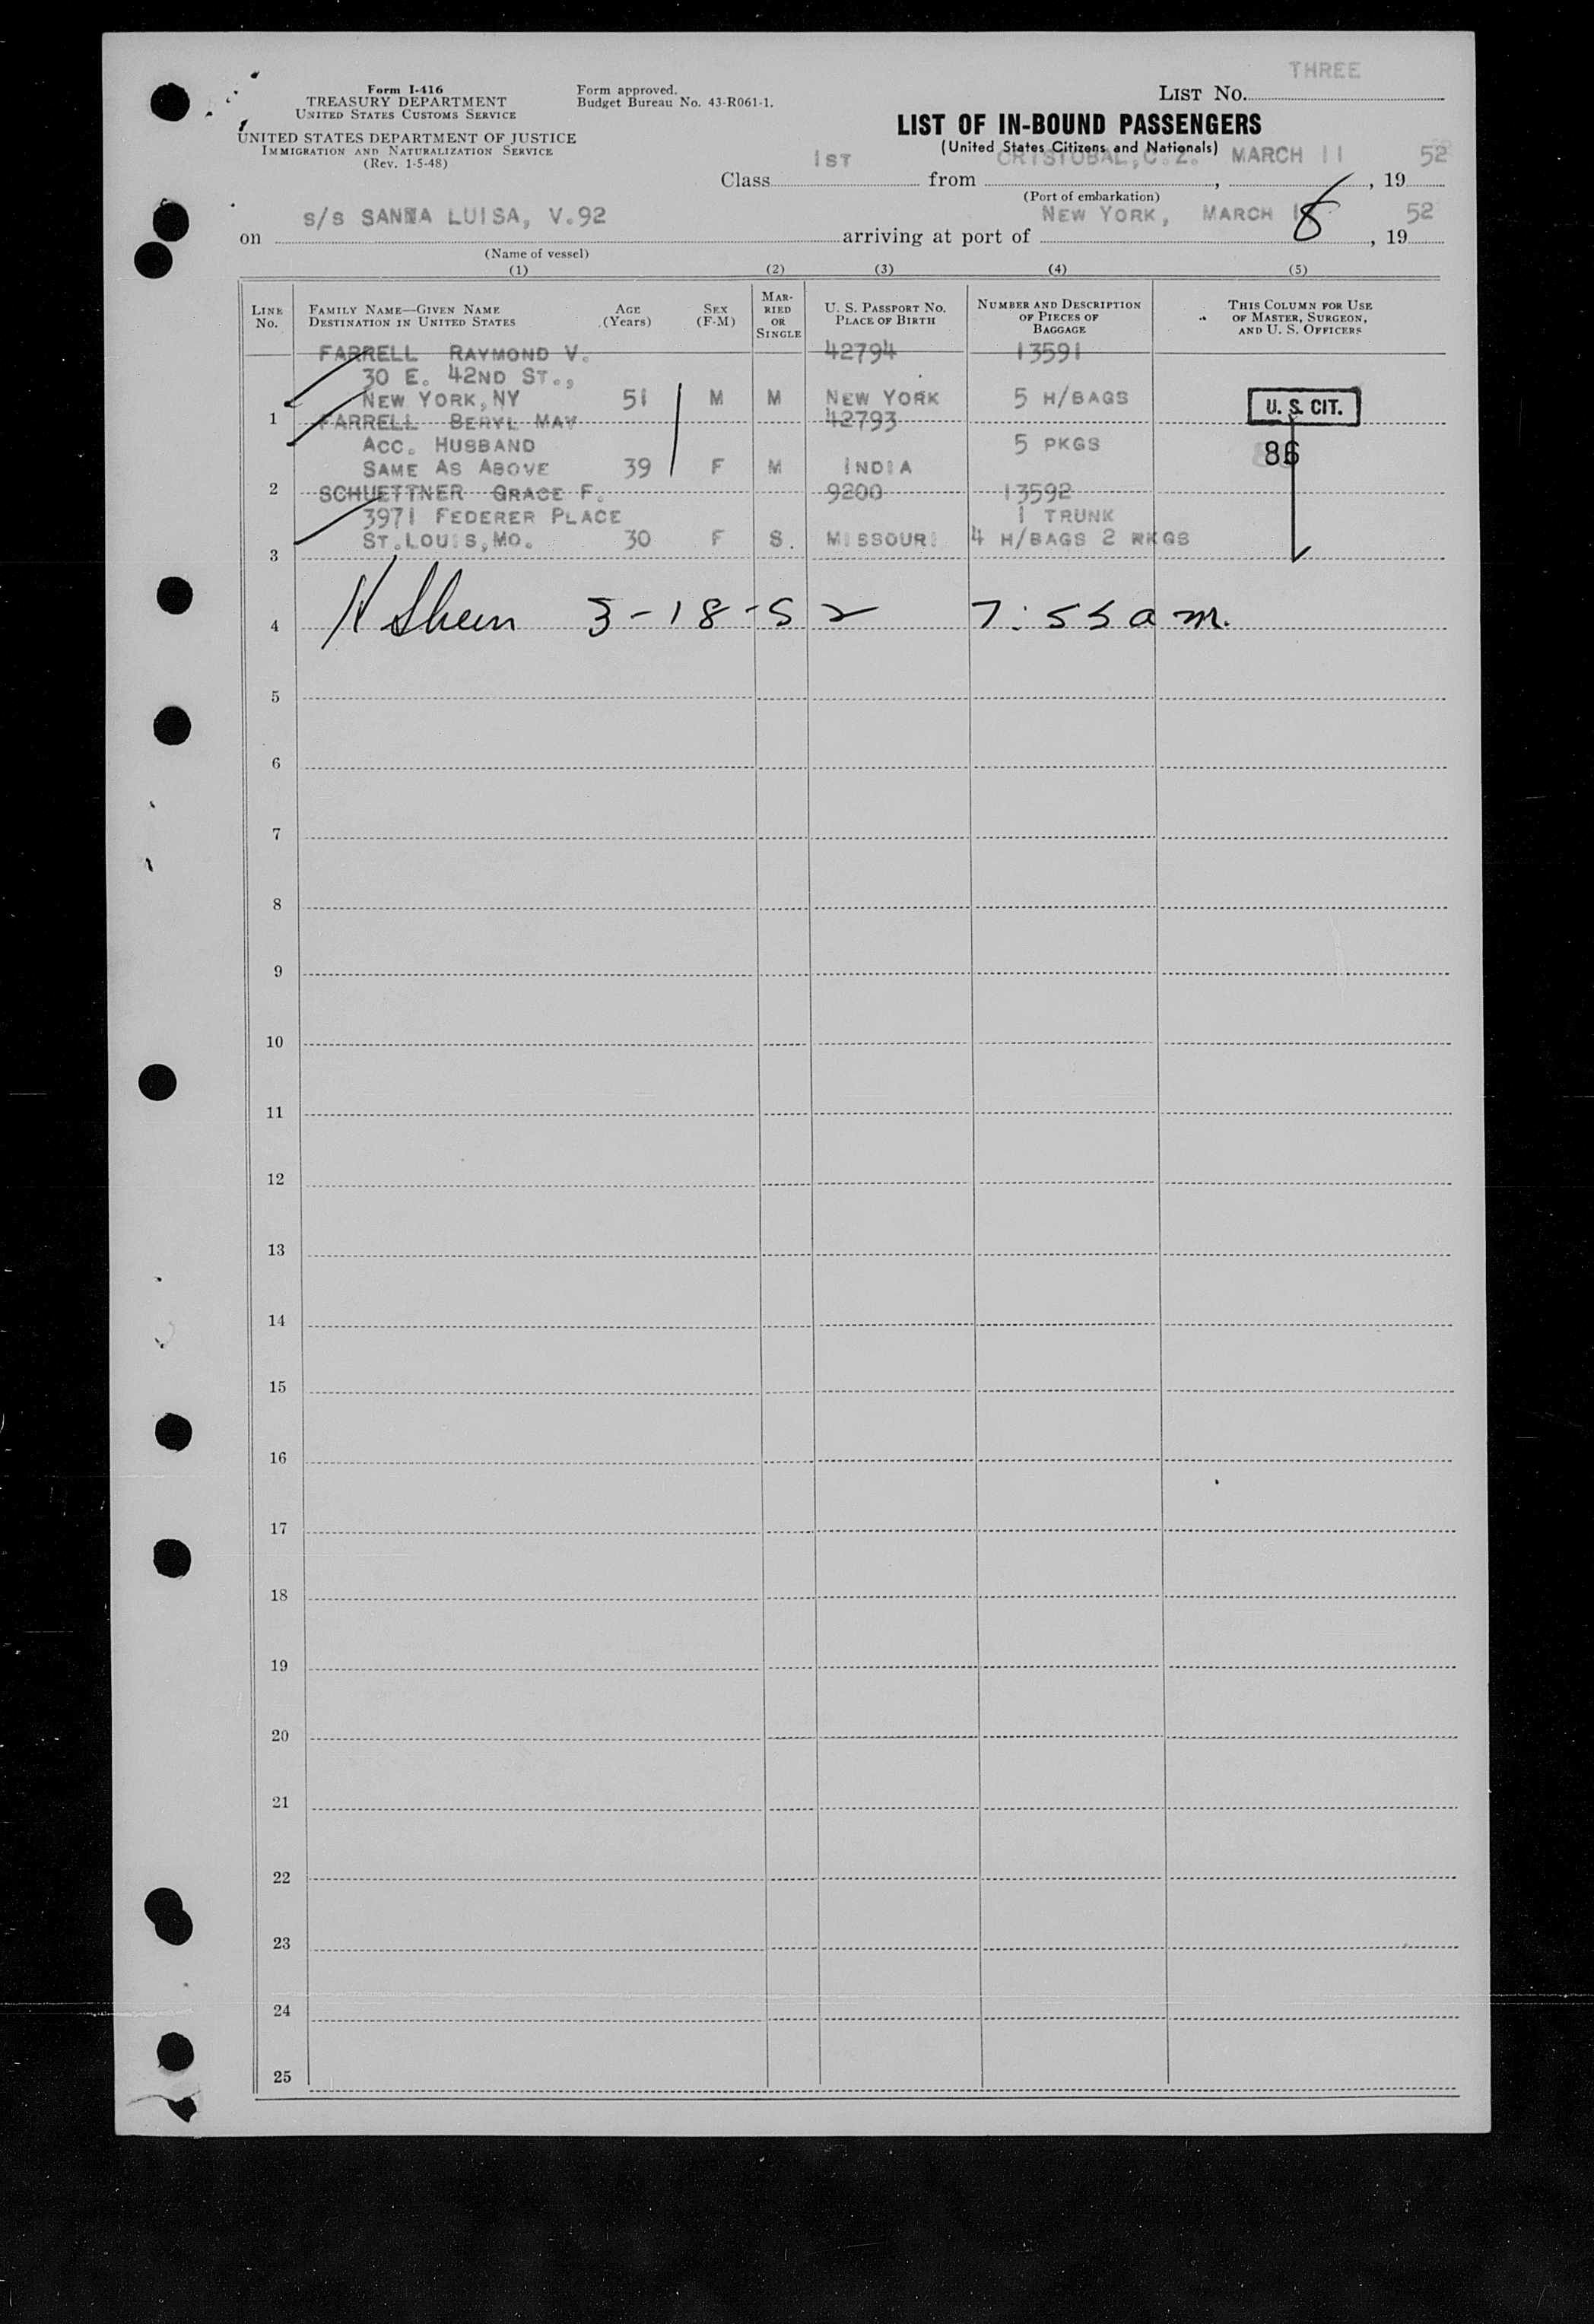 THREE
Form I-416
TREASURY DEPARTMENT
UNITED STATES CUSTOMS SERVICE
UNITED STATES DEPARTMENT OF JUSTICE
IMMIGRATION AND NATURALIZATION SERVICE
(Rev. 1-5-48)
Form approved.
Budget Bureau No. 43-R061-1.
LIST No.
LIST OF IN-BOUND PASSENGERS
(United States Citizens and Nationals)
1ST CRISTOBAL, C.Z. MARCH 11 52
Class from , , 19
(Port of embarkation)
S/S SANTA LUISA, V.92 NEW YORK, MARCH 18 52
on arriving at port of , 19
(Name of vessel)
(1) (2) (3) (4) (5)
LINE No. FAMILY NAME—GIVEN NAME DESTINATION IN UNITED STATES AGE (Years) SEX (F-M) MARRIED OR SINGLE U. S. PASSPORT NO. PLACE OF BIRTH NUMBER AND DESCRIPTION OF PIECES OF BAGGAGE THIS COLUMN FOR USE OF MASTER, SURGEON, AND U. S. OFFICERS
FARRELL RAYMOND V. 42794 13591
30 E. 42ND ST.,
NEW YORK, NY 51 M M NEW YORK 5 H/BAGS U. S. CIT.
1 FARRELL BERYL MAY 42793
ACC. HUSBAND 5 PKGS 86
SAME AS ABOVE 39 F M INDIA
2 SCHUETTNER GRACE F. 9200 13592
3971 FEDERER PLACE 1 TRUNK
ST. LOUIS, MO. 30 F S. MISSOURI 4 H/BAGS 2 PKGS
3
4 3-18-52 7:55 a m.
5
6
7
8
9
10
11
12
13
14
15
16
17
18
19
20
21
22
23
24
25